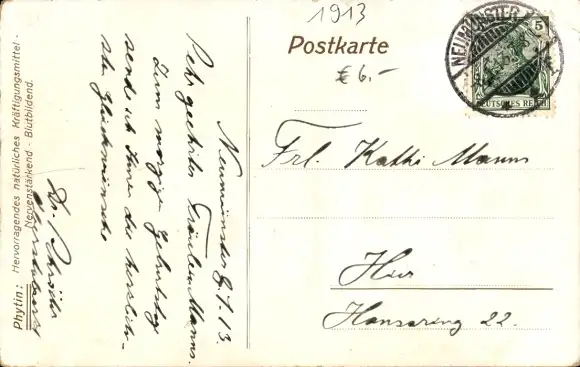 1913
Postkarte
€ 6.-
NEUMÜNSTER
5
DEUTSCHES REICH
Frl. Kathi Manns
Hier
Hansaring 22.
Neumünster 8.1.13.
Sehr geehrtes Fräulein Manns.
Zum morgigen Geburtstag
sende ich Ihnen die herzlich-
sten Glückwünsche
Dr.
Phytin: Hervorragendes natürliches Kräftigungsmittel -
Nervenstärkend - Blutbildend.